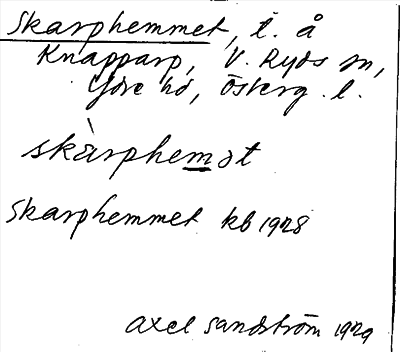 Skarphemmet, t. å
Knapparp, V. Ryds sn,
Ydre hd, Österg. l.
skàrphemət
Skarphemmet kb 1928
Axel Sandström 1929